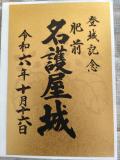 登城記念
肥前
名護屋城
令和六年十月十六日